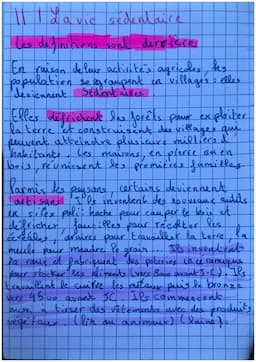 II | La vie sédentaire
Les définitions sont derrière
En raison de leur activités agricoles, les
population se groupent en villages : elles
deviennent Sédentaires
Elles défrichent les forêts pour exploiter
la terre et construisent des villages qui
peuvent atteindre plusieurs milliers d'
habitants. Les maisons, en pierre ou en
bois, réunissent les premières familles.
Parmis les paysans, certains deviennent
artisans. Ils inventent des nouveaux outils
en silex poli : hache pour couper le bois et
défricher, faucilles pour récolter les
céréales, araires pour travailler la terre, la
meule pour moudre le grain. Ils inventent
la roue et fabriquent des poteries en céramiques
pour stocker les aliments (vers 8000 avant J-C). Ils
travaillent le cuivre les métaux puis le bronze
vers 4500 avant JC Ils commencent
aussi à tisser des vêtements avec des produits
végétaux (lin ou animaux) (laine).